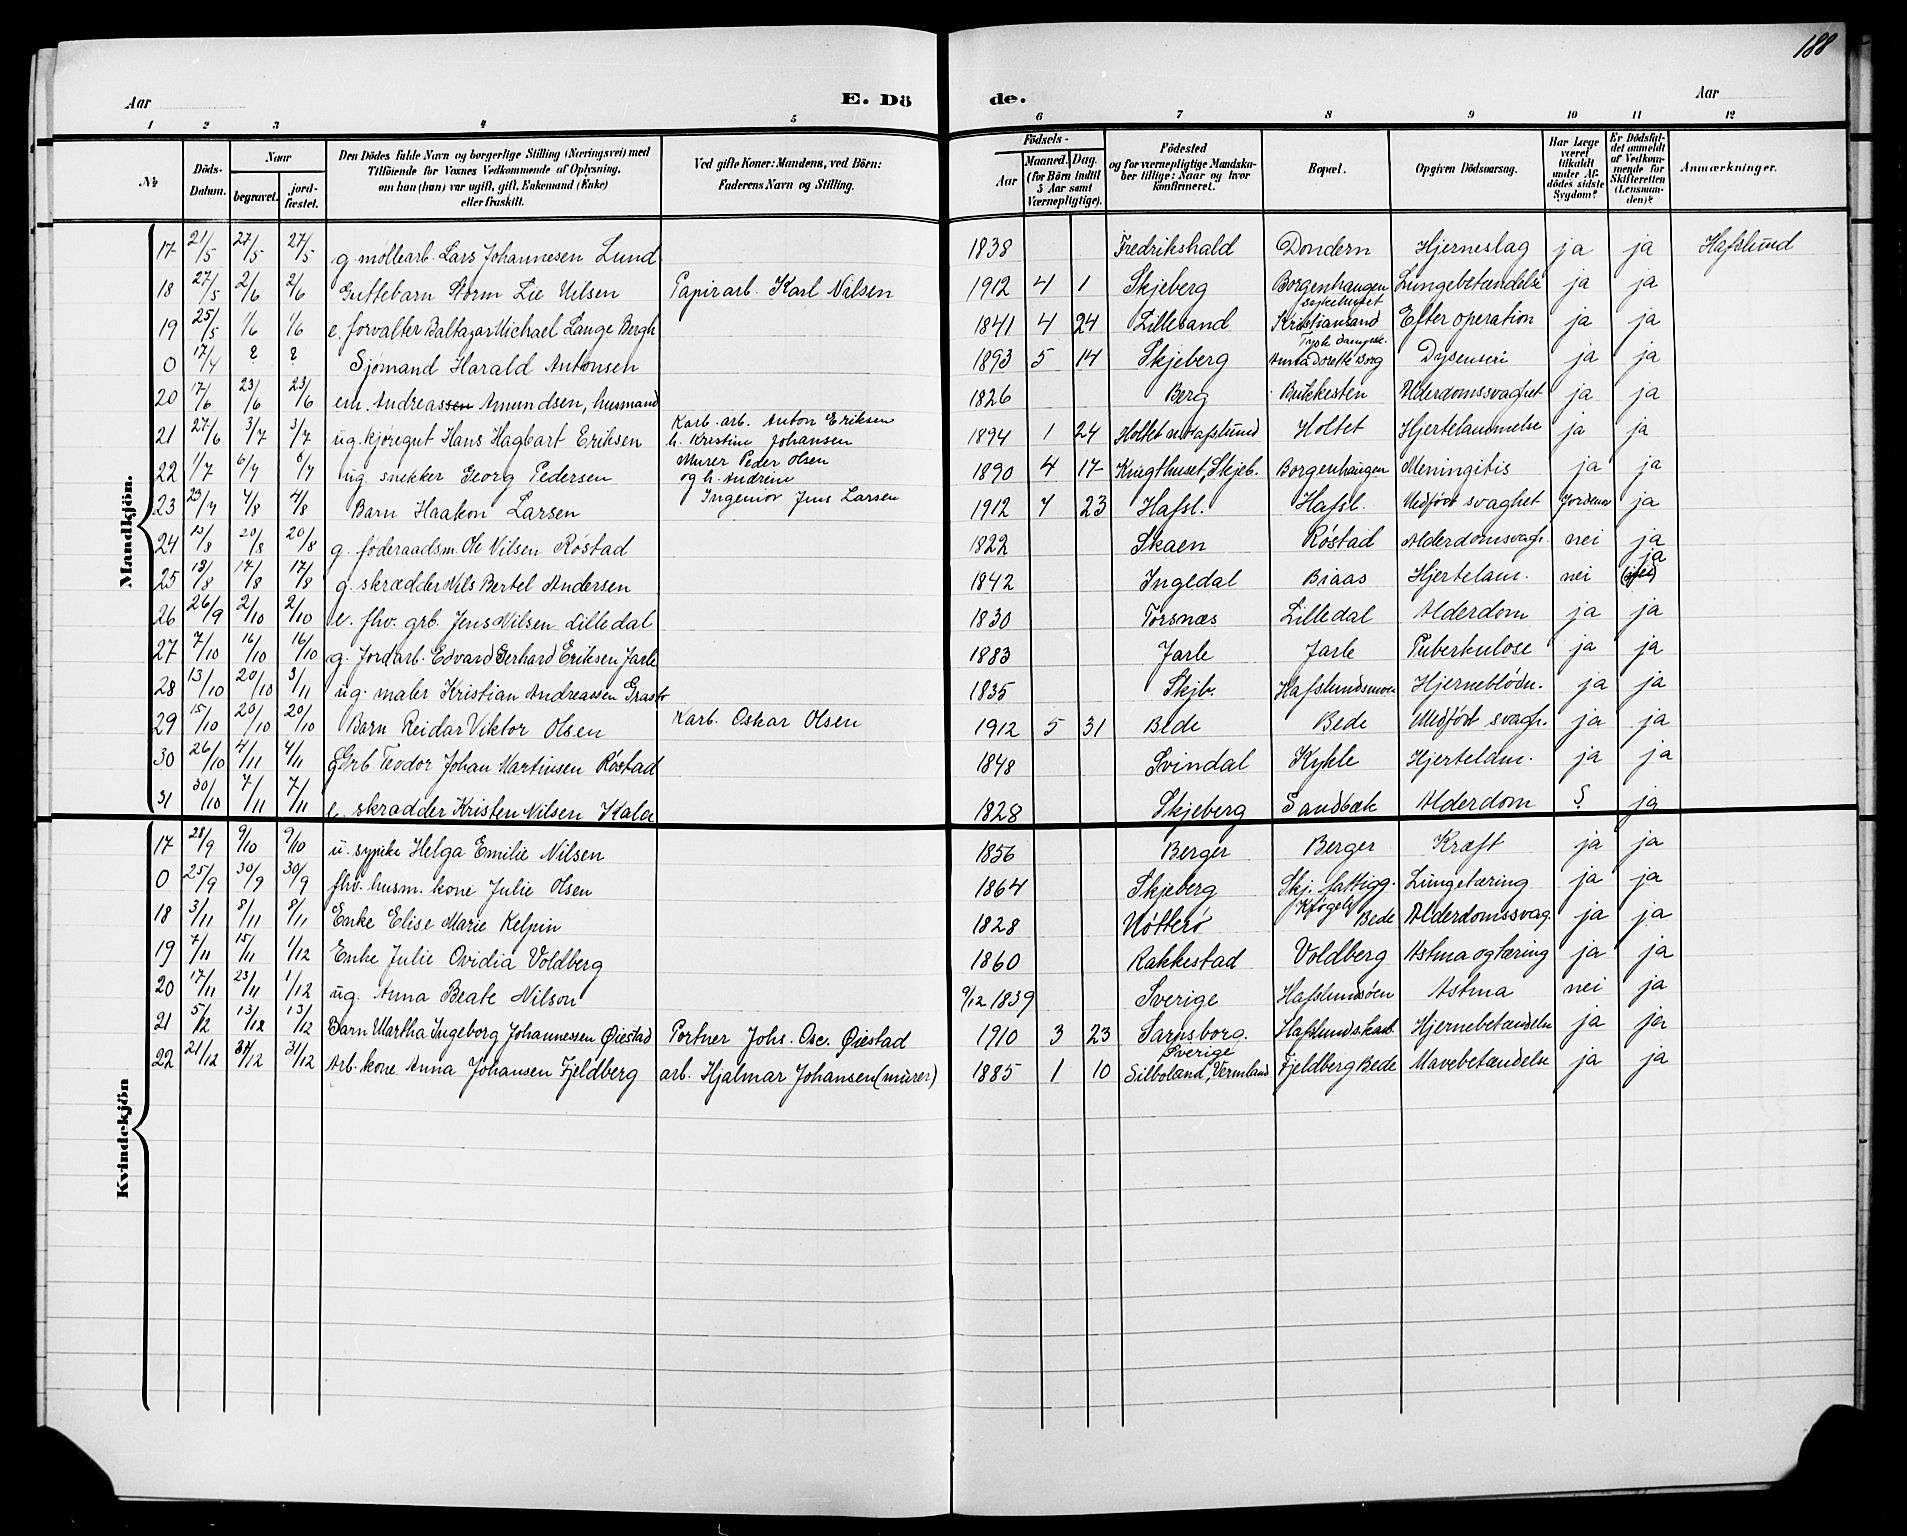 188
Aar
E. Dö
de.
Aar
1 2 3 4 5 6 7 8 9 10 11 12
№
Döds-Datum.
Naar
begravet.
jord-fæstet.
Den Dödes fulde Navn og borgerlige Stilling (Næringsvei) med
Tilföiende for Voxnes Vedkommende af Oplysning,
om han (hun) var ugift, gift, Enkemand (Enke)
eller fraskilt.
Ved gifte Koner: Mandens, ved Börn:
Faderens Navn og Stilling.
Födsels-
Aar
Maaned. Dag.
(for Börn indtil
5 Aar samt
Værnepligtige).
Födested
og for værnepligtige Mandska-
ber tillige: Naar og hvor
konfirmeret.
Bopæl.
Opgiven Dödsaarsag.
Har Læge
været
tilkaldt
under Af-
dödes sidste
Sygdom?
Er Dödsfal-
det anmeldt
af Vedkom-
mende for
Skifteretten
(Lensman-
den)?
Anmærkninger.
Mandkjön.
17 21/5 27/5 27/5 g. møllearb. Lars Johannesen Lund 1838 Fredrikshald Dondern Hjerneslag ja ja Hafslund
18 27/5 2/6 2/6 Guttebarn Storm Lie Nilsen Papirarb. Karl Nilsen 1912 4 1 Skjeberg Borgenhaugen Lungebetændelse ja ja
19 25/5 1/6 1/6 e. forvalter Baltazar Michael Lange Bergh 1841 4 24 Lillesand sykehuset Kristiansand Efter operation ja ja
0 17/4 ? ? Sjømand Harald Antonsen 1893 5 14 Skjeberg Tysk dampsk. Anna Dorette Borg Dysenteri ja ja
20 17/6 23/6 23/6 em. Andreassen Amundsen, husmand 1826 Berg Bukkesten Alderdomssvaghet ja ja
21 27/6 3/7 3/7 ug. kjøregut Hans Hagbart Eriksen Karb. arb. Anton Eriksen h. Kristine Johansen 1894 1 24 Holtet u. Hafslund Holtet Hjertelammelse ja ja
22 1/7 6/7 6/7 ug. snekker Georg Pedersen Murer Peder Olsen og h. Andrine 1890 4 17 Krigthuset, Skjeb. Borgenhaugen Meningitis ja ja
23 29/7 4/8 4/8 Barn Haakon Larsen Ingeniør Jens Larsen 1912 7 23 Hafsl. Hafsl. Medfødt svaghet Jordemor ja
24 13/8 20/8 20/8 g. føderaadsm. Ole Nilsen Røstad 1822 Skaen Røstad Alderdomsvagh. nei ja
25 13/8 17/8 17/8 g. skrædder Nils Bertel Andersen 1842 Ingedal Biaas Hjertelam. nei ja
26 26/9 2/10 2/10 e. fhv. grb. Jens Nilsen Lilledal 1830 Torsnæs Lilledal Alderdom ja ja
27 7/10 16/10 16/10 g. Jordarb. Edvard Gerhard Eriksen Jarle 1883 Jarle Jarle Tuberkulose ja ja
28 13/10 20/10 3/11 ug. maler Kristian Andreassen 1835 Skjb. Hafslundsmoen Hjerneblødn. ja ja
29 15/10 20/10 20/10 Barn Reidar Viktor Olsen Karb. Oskar Olsen 1912 5 31 Bede Bede Medfødt svagh. ja ja
30 26/10 4/11 4/11 Grb. Teodor Johan Martinsen Røstad 1848 Svindal Kykle Hjertelam. ja ja
31 30/10 7/11 7/11 e. skradder Kristen Nilsen Kala 1828 Skjeberg Sandbæk Alderdom ? ja
Kvindekjön
17 28/9 9/10 9/10 u. sypike Helga Emilie Nilsen 1856 Berger Berger Kræft ja ja
0 25/9 30/9 30/9 fhv. husm. kone Julie Olsen 1864 Skjeberg Skj. fattigg. Lungetæring ja ja
18 3/11 8/11 8/11 Enke Elise Marie Kelpin 1828 Nøtterø Bede Alderdomssvag. ja ja
19 7/11 15/11 1/12 Enke Julie Ovidia Voldberg 1860 Rakkestad Voldberg Astma og tæring ja ja
20 17/11 23/11 1/12 ug. Anna Beate Nilson 9/12 1839 Sverige Hafslundsøen Astma nei ja
21 5/12 13/12 13/12 Barn Martha Ingeborg Johannessen Øiestad Portner Johs. Osc. Øiestad 1910 3 23 Sarpsborg. Hafslunds karb. Hjernebetændelse ja ja
22 21/12 31/12 31/12 Arb. kone Anna Johansen Fjeldberg arb. Hjalmar Johansen (murer) 1885 1 10 Sverige Silboland, Vermland Fjeldberg Bede Mavebetændelse ja ja